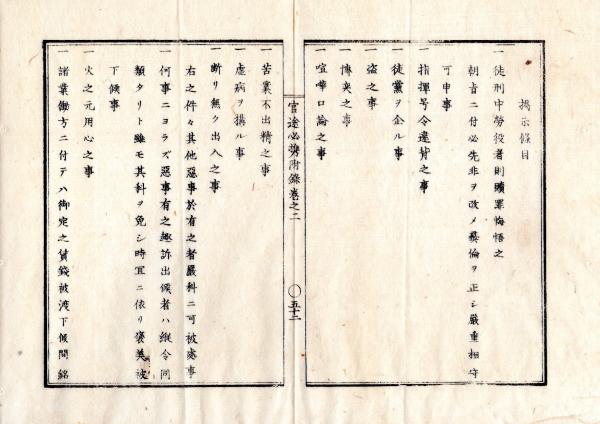 掲示條目
一徒刑中勞役者則贖罪悔悟之
朝旨ニ付必先非ヲ改メ彛倫ヲ正シ嚴重相守
可申事
一指揮号令違背之事
一徒黨ヲ企ル事
一盗之事
一博奕之事
一喧嘩口論之事
官途必携附録巻之二
〇五十二
一苦業不出精之事
一虚病ヲ搆ル事
一斷リ無ク出入之事
右之件々其他惡事於有之者嚴科ニ可被處事
一何事ニヨラズ惡事有之趣訴出候者ハ縱令同
類タリト雖モ其科ヲ免シ時宜ニ依リ褒美被
下候事
一火之元用心之事
一諸業働方ニ付テハ御定之賃錢被渡下候間銘